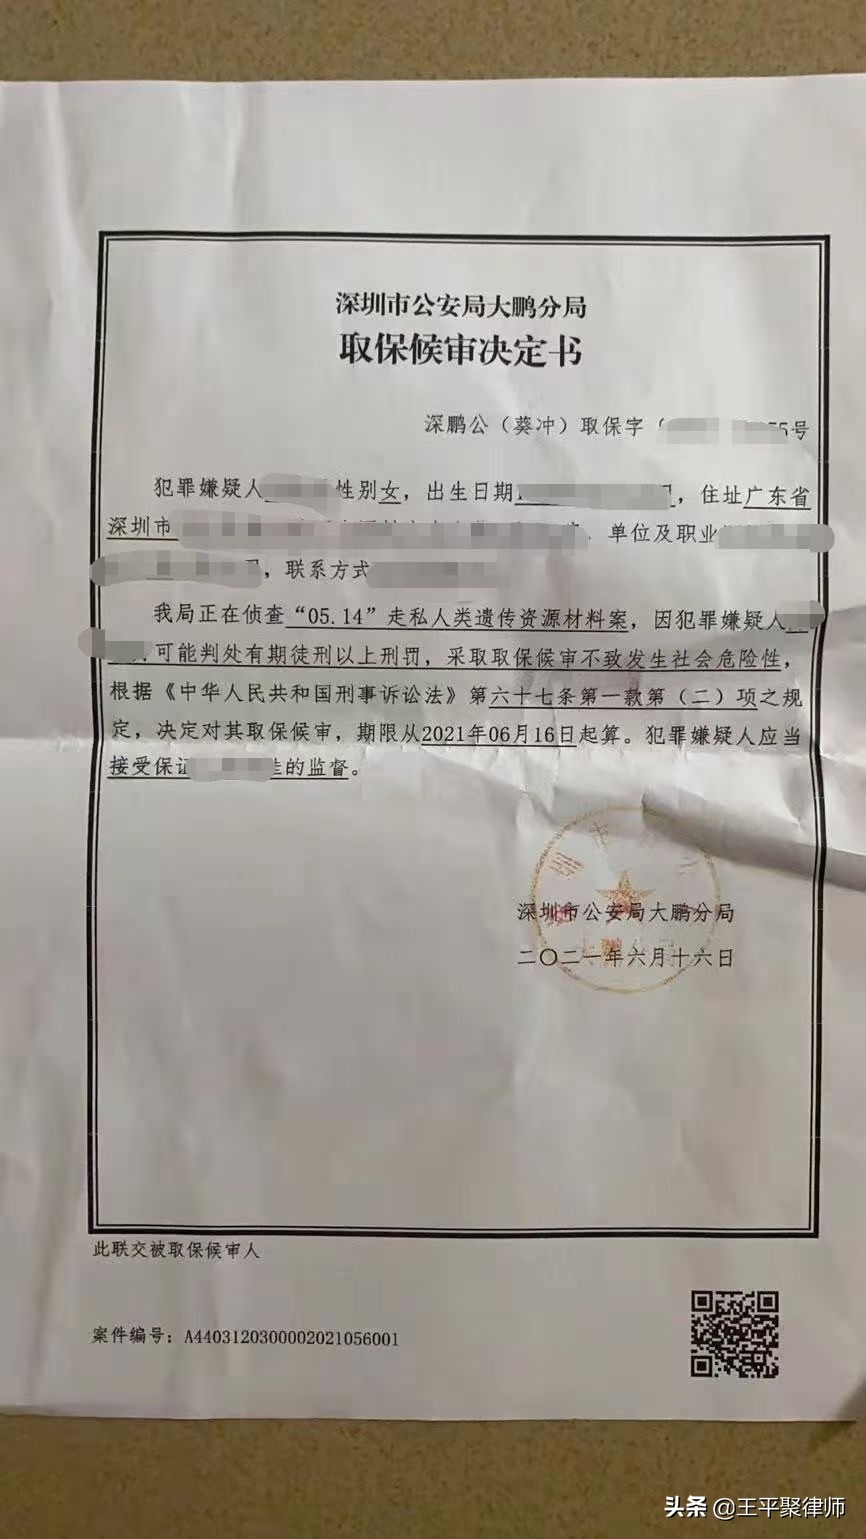 深圳市公安局大鹏分局
取保候审决定书
深鹏公（葵冲）取保字（ 55号
犯罪嫌疑人 性别女，出生日期 ，住址广东省
深圳市 、单位及职业
，联系方式
我局正在侦查“05.14”走私人类遗传资源材料案，因犯罪嫌疑人
可能判处有期徒刑以上刑罚，采取取保候审不致发生社会危险性，
根据《中华人民共和国刑事诉讼法》第六十七条第一款第（二）项之规
定，决定对其取保候审，期限从2021年06月16日起算。犯罪嫌疑人应当
接受保证 的监督。
深圳市公安局大鹏分局
二〇二一年六月十六日
此联交被取保候审人
案件编号：A4403120300002021056001
头条 @王平聚律师